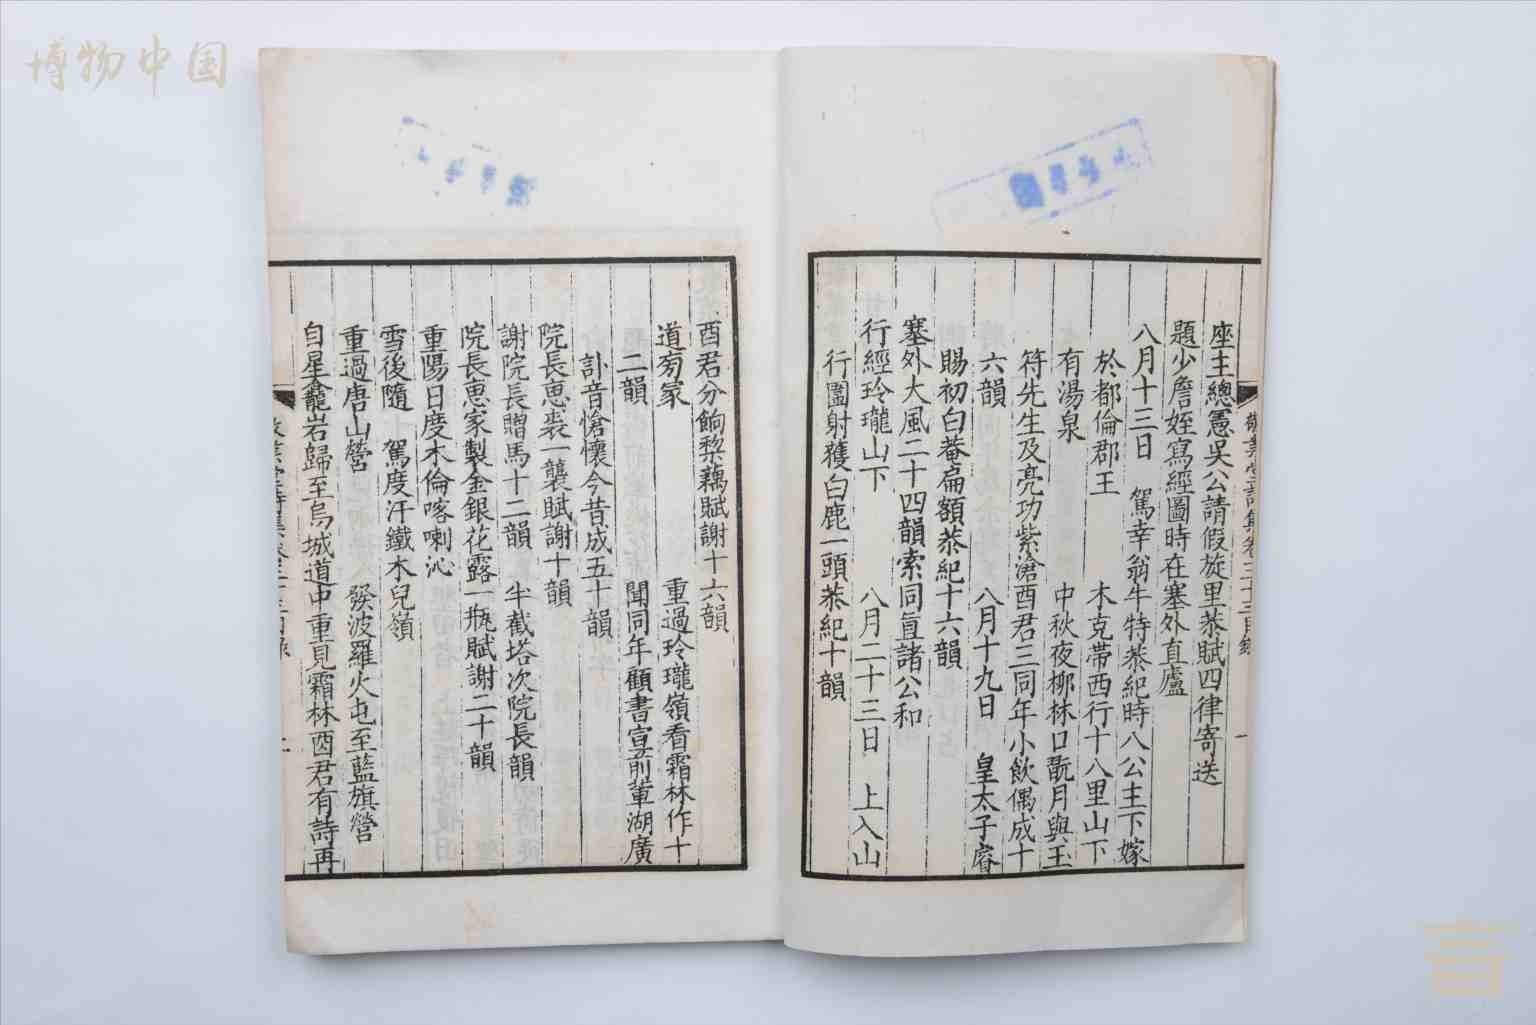 博物中国
座主總憲吳公請假旋里恭賦四律寄送
題少詹姪寫經圖時在塞外直廬
八月十三日　駕幸翁牛特恭紀時八公主下嫁
於都倫郡王　木克帶西行十八里山下
有湯泉　中秋夜柳林口翫月與玉
符先生及亮功紫滄酉君三同年小飲偶成十
六韻　八月十九日　皇太子睿
賜初白菴扁額恭紀十六韻
塞外大風二十四韻索同直諸公和
行經玲瓏山下　八月二十三日　上入山
行圍射獲白鹿一頭恭紀十韻
酉君分餉棃藕賦謝十六韻
道旁冢　重過玲瓏嶺看霜林作十
二韻　聞同年顧書宣前輩湖廣
訃音愴懷今昔成五十韻
院長惠裘一襲賦謝十韻
謝院長贈馬十二韻　半截塔次院長韻
院長惠家製金銀花露一瓶賦謝二十韻
重陽日度木倫喀喇沁
雪後隨　駕度汗鐵木兒嶺
重過唐山營　發波羅火屯至藍旗營
自星龕岩歸至烏城道中重見霜林酉君有詩再